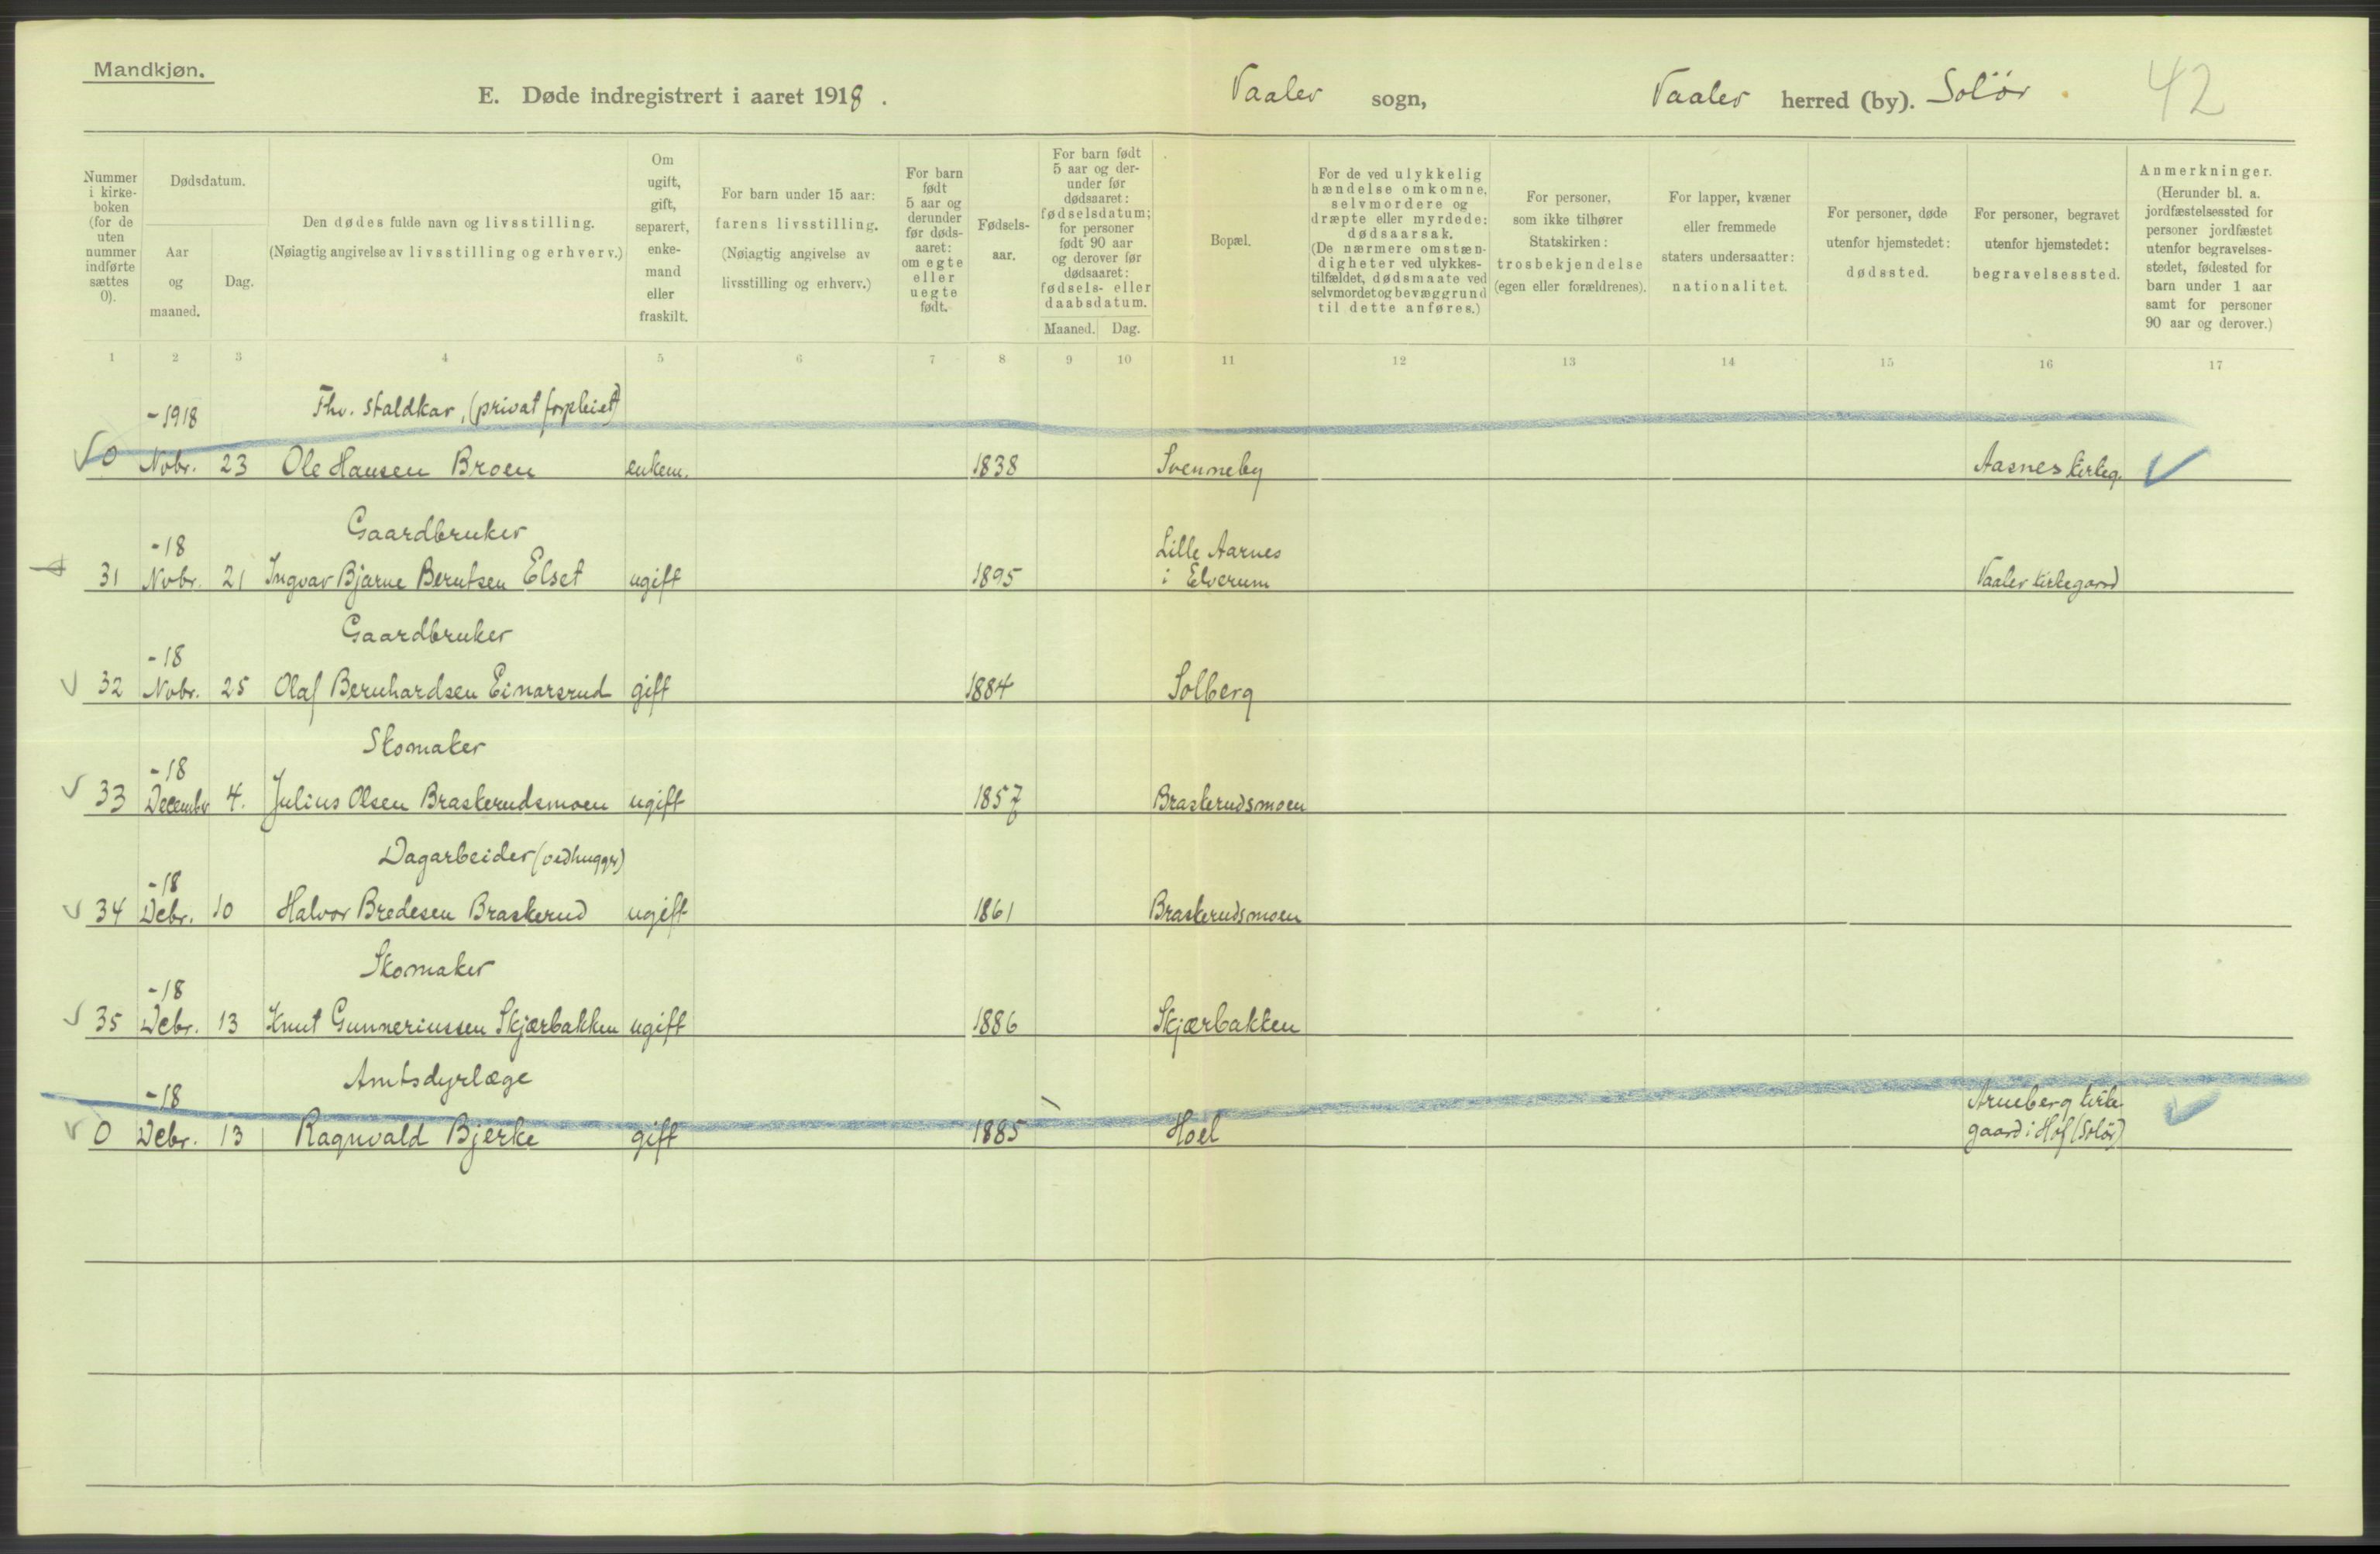 Mandkjøn.
E. Døde indregistrert i aaret 1918.
Vaaler sogn,
Vaaler herred (by). Solör
42
Nummer i kirke-boken (for de uten nummer indførte sættes 0).
Dødsdatum.
Aar og maaned.
Dag.
Den dødes fulde navn og livsstilling.
(Nøiagtig angivelse av livsstilling og erhverv.)
Om ugift, gift, separert, enke-mand eller fraskilt.
For barn under 15 aar: farens livsstilling.
(Nøiagtig angivelse av livsstilling og erhverv.)
For barn født 5 aar og derunder før døds-aaret: om egte eller uegte født.
Fødsels-aar.
For barn født 5 aar og der-under før dødsaaret: fødselsdatum; for personer født 90 aar og derover før dødsaaret: fødsels- eller daabsdatum.
Maaned. Dag.
Bopæl.
For de ved ulykkelig hændelse omkomne, selvmordere og dræpte eller myrdede: dødsaarsak.
(De nærmere omstæn-digheter ved ulykkes-tilfældet, dødsmaate ved selvmordet og bevæggrund til dette anføres.)
For personer, som ikke tilhører Statskirken: trosbekjendelse (egen eller forældrenes).
For lapper, kvæner eller fremmede staters undersaatter: nationalitet.
For personer, døde utenfor hjemstedet: dødssted.
For personer, begravet utenfor hjemstedet: begravelsessted.
Anmerkninger.
(Herunder bl. a. jordfæstelsessted for personer jordfæstet utenfor begravelses-stedet, fødested for barn under 1 aar samt for personer 90 aar og derover.)
1 2 3 4 5 6 7 8 9 10 11 12 13 14 15 16 17
-1918 Fhv. Staldkar, (privat forpleiet)
0 Nobr. 23 Ole Hansen Broen enkem. 1838 Svenneby Aasnes kirkeg.
-18 Gaardbruker Lille Aarnes
31 Nobr. 21 Ingvar Bjarne Berntsen Elset ugift 1895 i Elverum Vaaler kirkegaard
-18 Gaardbruker
32 Nobr. 25 Olaf Bernhardsen Einarsrud gift 1884 Solberg
-18 Skomaker
33 Decembr 4. Julius Olsen Braskerudsmoen ugift 1857 Braskerudsmoen
-18 Dagarbeider (vedhugger)
34 Debr. 10 Halvor Bredesen Braskerud ugift 1861 Braskerudsmoen
-18 Skomaker
35 Debr. 13 Knut Gunneriussen Skjærbakken ugift 1886 Skjærbakken
-18 Amtsdyrlæge Arneberg kirke-
0 Debr. 13 Ragnvald Bjerke gift 1885 Hoel gaard i Hof (Solör)